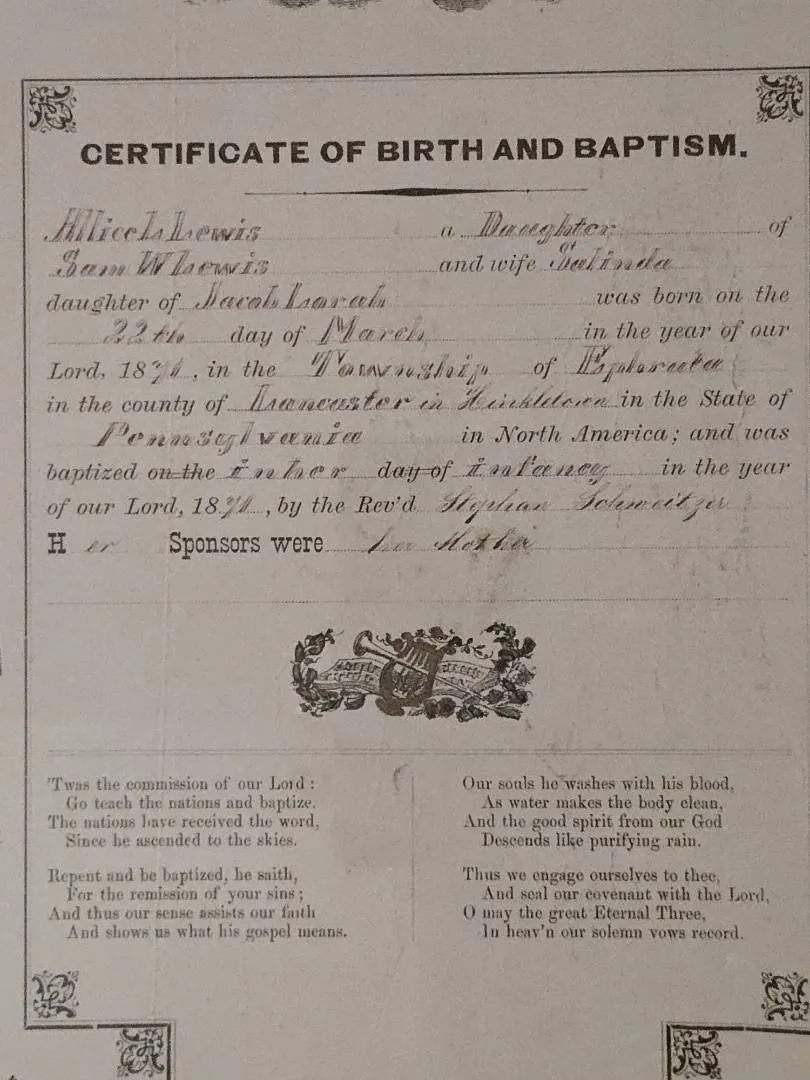 CERTIFICATE OF BIRTH AND BAPTISM.
Allice L Lewis a Daughter of
Sam W Lewis and wife Salinda
daughter of Jacob Lorah was born on the
22th day of March in the year of our
Lord, 18 , in the Township of Ephrata
in the county of Lancaster in Hinkletown in the State of
Pennsylvania in North America; and was
baptized on the in her day of infancy in the year
of our Lord, 18 , by the Rev'd Stephan Schweitzer
H er Sponsors were her Mother
'Twas the commission of our Lord:
Go teach the nations and baptize.
The nations have received the word,
Since he ascended to the skies.
Repent and be baptized, he saith,
For the remission of your sins;
And thus our sense assists our faith
And shows us what his gospel means.
Our souls he washes with his blood,
As water makes the body clean,
And the good spirit from our God
Descends like purifying rain.
Thus we engage ourselves to thee,
And seal our covenant with the Lord,
O may the great Eternal Three,
In heav'n our solemn vows record.